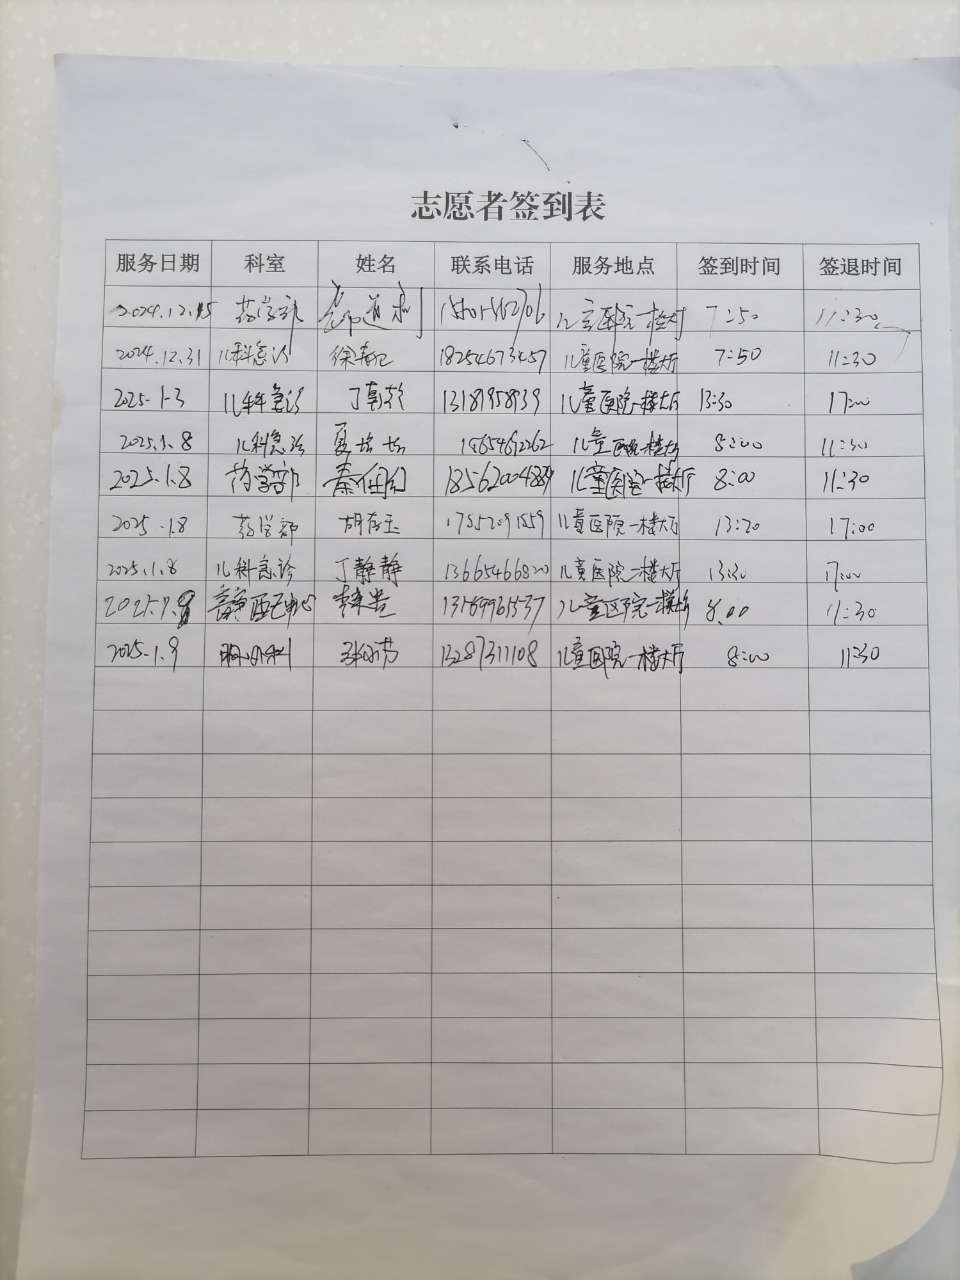 志愿者签到表
服务日期 科室 姓名 联系电话 服务地点 签到时间 签退时间
2024.12.15 药学部 道利 儿童医院一楼大厅 7:50 11:30
2024.12.31 儿科急诊 徐 18254673457 儿童医院一楼大厅 7:50 11:30
2025.1.3 儿科急诊 丁 13181958939 儿童医院一楼大厅 13:30 17:00
2025.1.8 儿科急诊 夏 15654692262 儿童医院一楼大厅 8:00 11:30
2025.1.8 药学部 秦 儿童医院一楼大厅 8:00 11:30
2025.1.8 药学部 胡存玉 儿童医院一楼大厅 17:00
2025.1.8 儿科急诊 丁静静 13665466820 儿童医院一楼大厅 13:30 17:00
儿童医院一楼大厅 8:00 11:30
2025.1.9 外科 13287311108 儿童医院一楼大厅 8:00 11:30